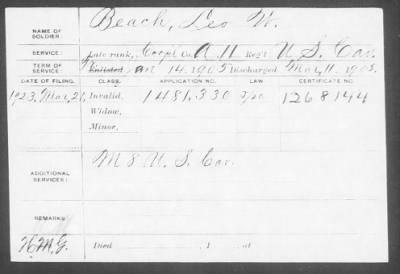 NAME OF SOLDIER: Beach, Leo W.
SERVICE: Late rank, Corpl Co. A 11 Reg't U S Cav.
TERM OF SERVICE: Enlisted 14, 1905 Discharged 11, 1908.
DATE OF FILING. CLASS. APPLICATION NO. CERTIFICATE NO.
1923, Mar. 21, Invalid, 1481,330 1268144
Widow,
Minor,
ADDITIONAL SERVICES: M 8 U. S. Cav.
REMARKS:
H.M.G. Died , 1 , at